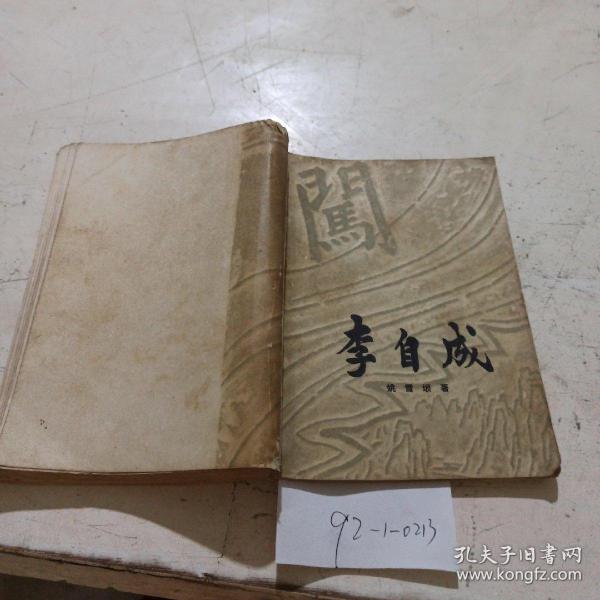 闖
李自成
姚雪垠著
92-1-0213
孔夫子旧书网
www.kongfz.com